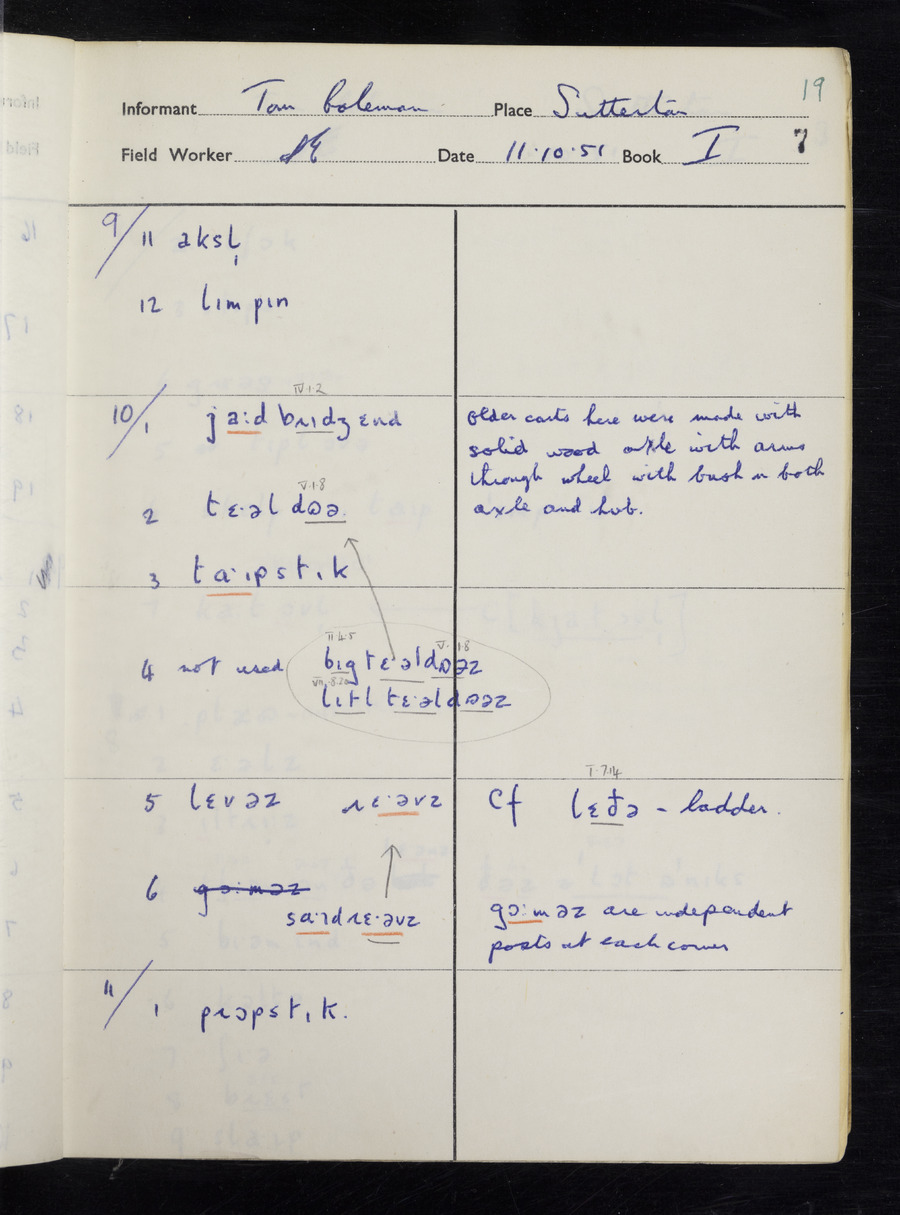 19
Informant Tom Coleman Place Sutterton
Field Worker Date 11.10.51 Book I 7
9/ 11 aksl̩
12 lɪmpɪn
IV.1.2
10/1 jaːd bɹɪdʒ ɛnd
older carts here were made with
solid wood axle with arms
through wheel with bush in both
axle and hub.
V.1.8
2 tɛ·əl dɒə.
3 ta·ɪpstɪk
II.4.5 V.1.8
4 not used bɪg tɛ·əldɒəz
lɪtl tɛ·əldɒəz
I.7.14
5 lɛvəz ɹɛ·əvz Cf lɛðə - ladder.
6 gɔːməz
sa·ɪdɹɛ·əvz
gɔːməz are independent
posts at each corner
11/1 pɹɔpstɪk.